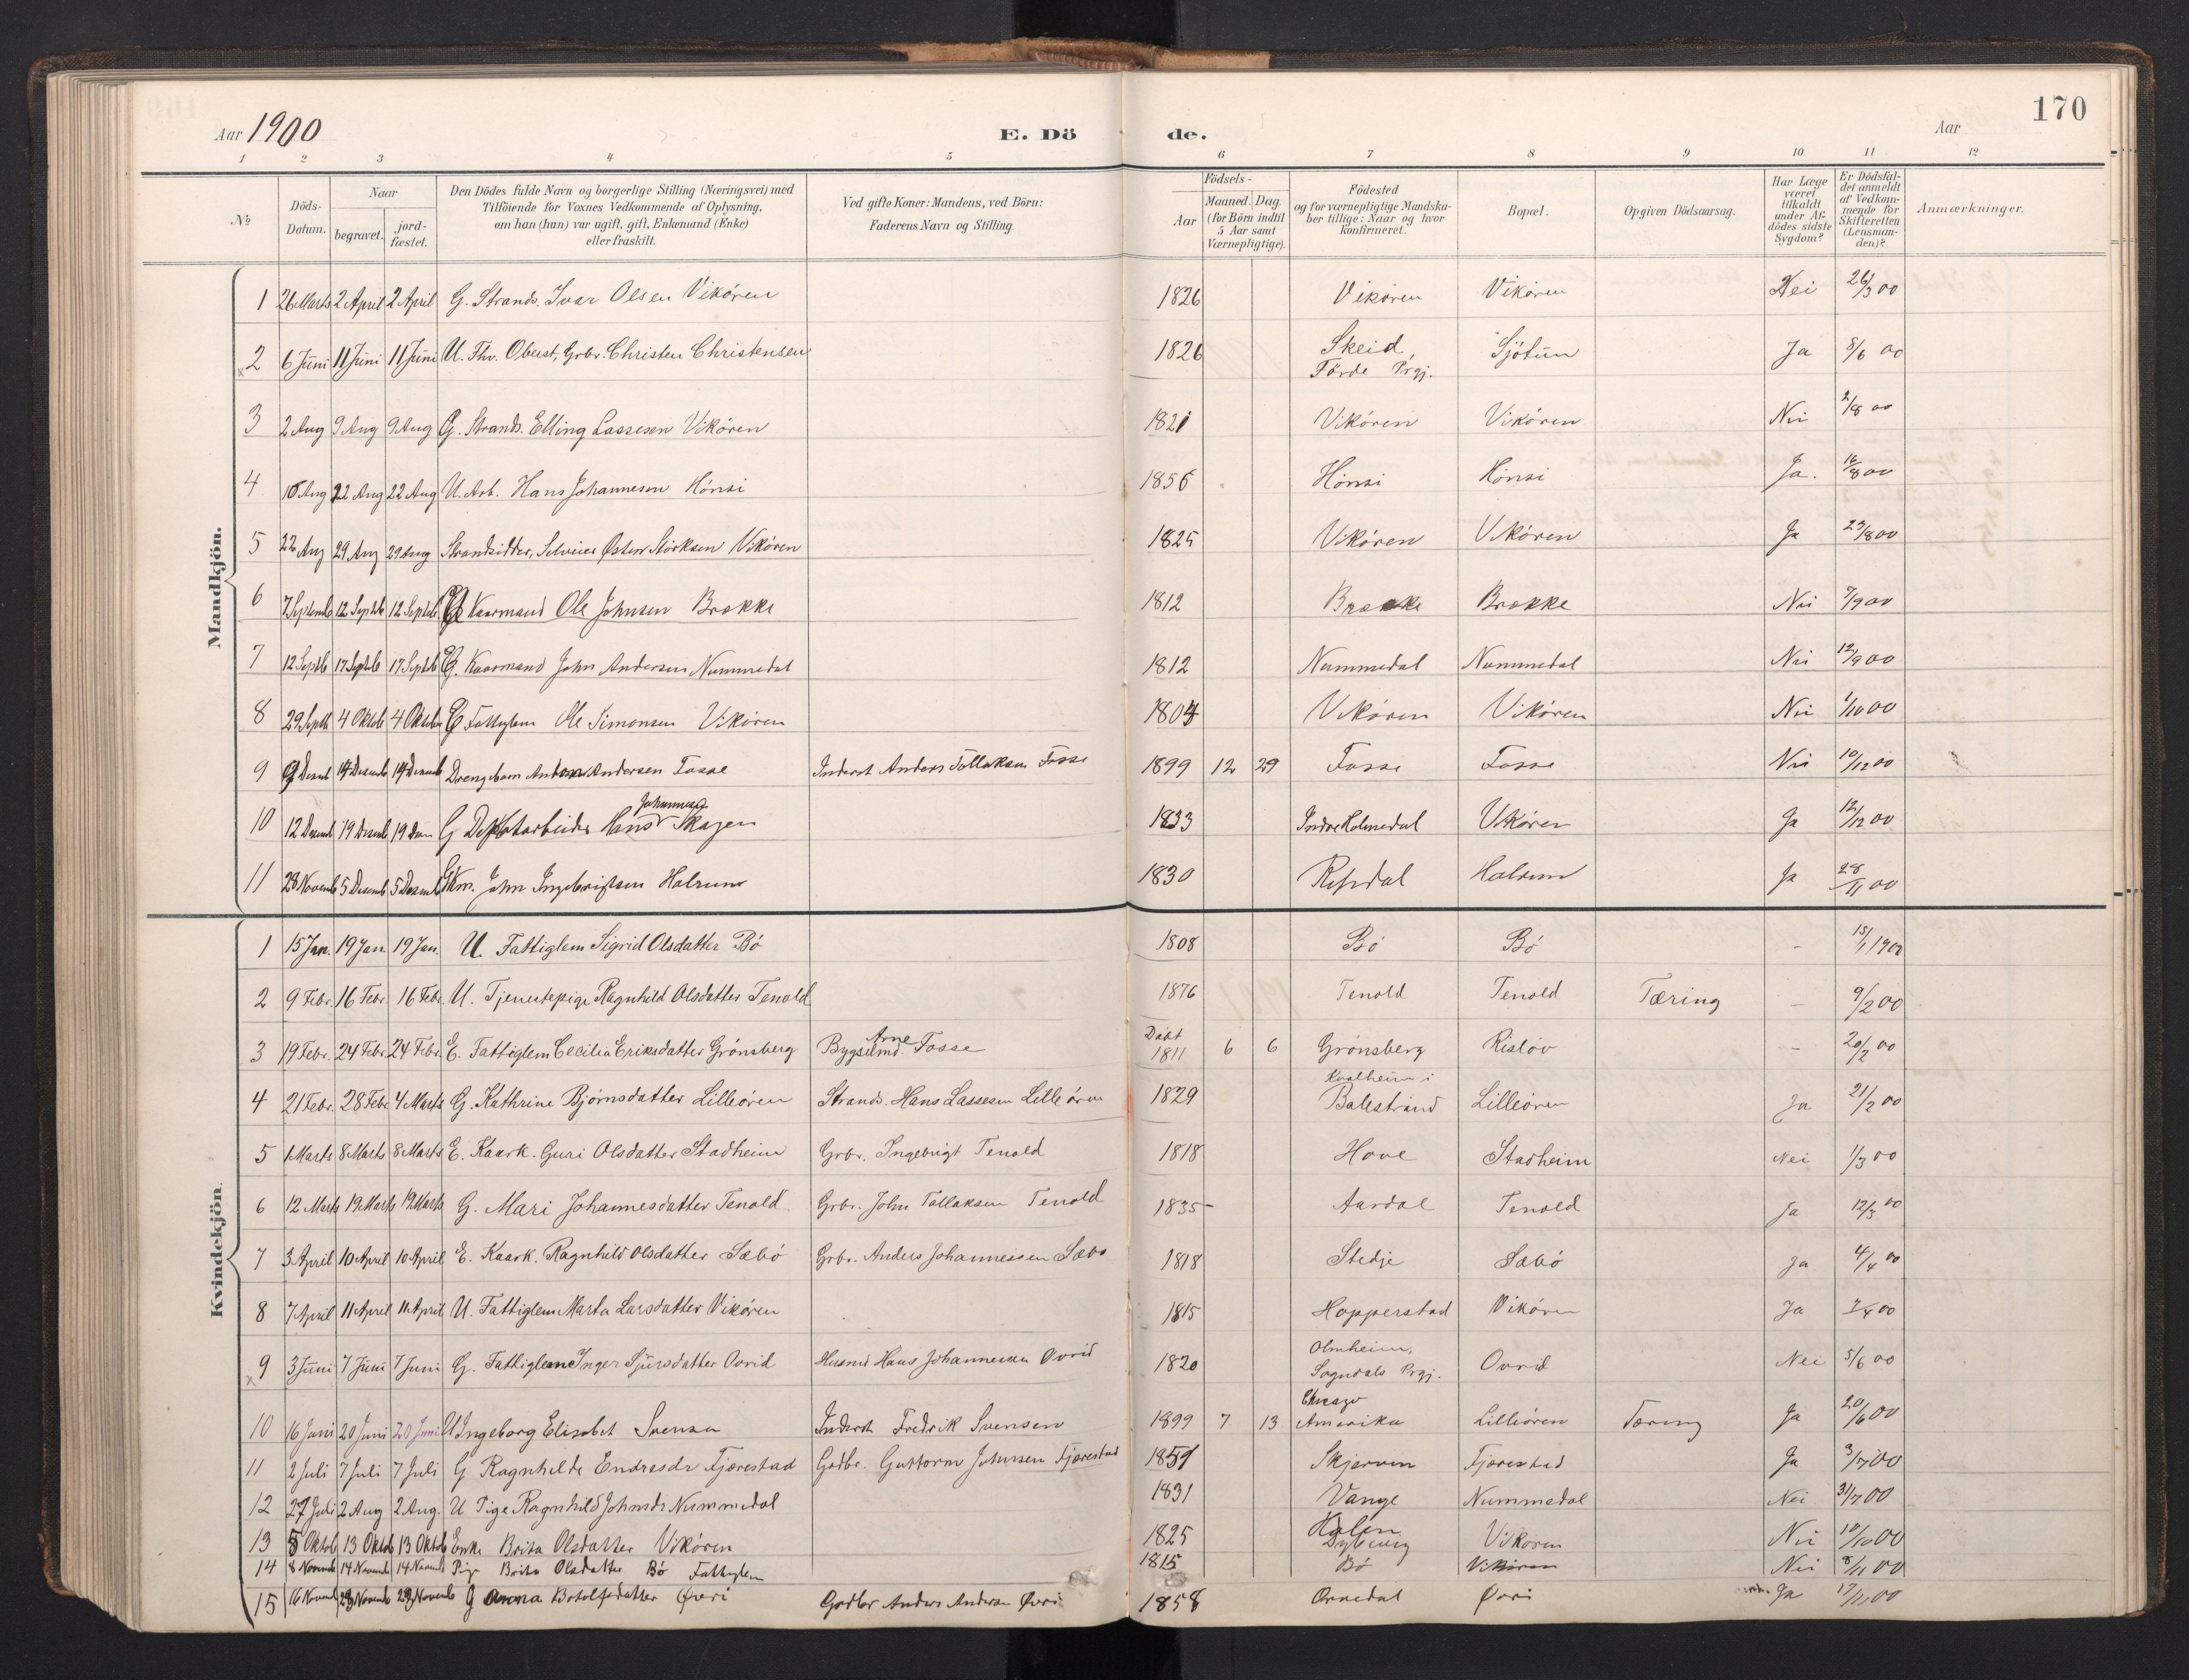 170
Aar 1900 E. Dö de. Aar
1 2 3 4 5 6 7 8 9 10 11 12
No
Döds-Datum.
Naar
begravet.
jord-fæstet.
Den Dödes fulde Navn og borgerlige Stilling (Næringsvei) med
Tilföiende for Voxnes Vedkommende af Oplysning,
om han (hun) var ugift, gift, Enkemand (Enke)
eller fraskilt.
Ved gifte Koner: Mandens, ved Börn:
Faderens Navn og Stilling.
Födsels-
Aar
Maaned. Dag
(for Börn indtil
5 Aar samt
Værnepligtige).
Födested
og for værnepligtige Mandska-
ber tillige: Naar og hvor
konfirmeret.
Bopæl.
Opgiven Dödsaarsag.
Har Læge
været
tilkaldt
under Af-
dödes sidste
Sygdom?
Er Dödsfal-
det anmeldt
af Vedkom-
mende for
Skifteretten
(Lensman-
den)?
Anmærkninger.
Mandkjön.
1 26 Marts 2 April 2 April G. Strands. Ivar Olsen Vikören 1826 Vikören Vikören Nei 26/3 00
x 2 6 Juni 11 Juni 11 Juni U. Fhv. Oberst, Grbr. Christen Christensen 1826 Skeid, Förde Prgj. Sjötun Ja 8/6 00
3 2 Aug 9 Aug 9 Aug G. Strands. Elling Lassesen Vikören 1821 Vikören Vikören Nei 2/8 00
4 16 Aug 22 Aug 22 Aug U. Arb. Hans Johannesen Hönsi 1856 Hönsi Hönsi Ja. 16/8 00
5 22 Aug 29 Aug 29 Aug Strandsidder, Selveier Østen Störksen Vikören 1825 Vikören Vikören Ja 23/8 00
6 7 Septemb 12 Septb 12 Septb Kaarmand Ole Johnsen Brekke 1812 Brekke Brekke Nei 7/9 00
7 12 Septb 17 Septb 17 Septb G. Kaarmand John Andersen Nummedal 1812 Nummedal Nummedal Nei 12/9 00
8 29 Septb 4 Oktob 4 Oktober E Fattiglem Ole Simonsen Vikören 1804 Vikören Vikören Nei 1/10 00
9 9 Desemb 14 Desemb 14 Desemb Drengebarn Anton Andersen Fosse Inderst Anders Tollaksen Fosse 1899 12 29 Fosse Fosse Nei 10/12 00
10 12 Desemb 19 Desemb 19 Desem G Hans Johannesen Skagen 1833 Indre Holmedal Vikören Ja 12/12 00
11 28 Novemb 5 Desemb 5 Desemb G Km. John Ingebrigtsen Halsum 1830 Halsum Ja 28/11 00
Kvindekjön.
1 15 Jan. 19 Jan. 19 Jan. U. Fattiglem Sigrid Olsdatter Bö 1808 Bö Bö - 15/1 1900
2 9 Febr. 16 Febr 16 Febr. U. Tjenestepige Ragnhild Olsdatter Tenold 1876 Tenold Tenold Tæring - 9/2 00
3 19 Febr. 24 Febr. 24 Febr. E. Fattiglem Cecilia Eriksdatter Grönsberg Bygselmd. Arne Fosse Döbt 1811 6 6 Grönsberg Rislöv - 20/2 00
4 21 Febr. 28 Febr 4 Marts G. Kathrine Björnsdatter Lilleören Strands. Hans Lassesen Lilleören 1829 Kvalheim i Balestrand Lilleören Ja 21/2 00
5 1 Marts 8 Marts 8 Marts E. Kaark. Guri Olsdatter Stadheim Grbr. Ingebrigt Tenold 1818 Hove Stadheim Nei 1/3 00
6 12 Marts 19 Marts 19 Marts G. Mari Johannesdatter Tenold Grbr. John Tollaksen Tenold 1835 Aardal Tenold Ja 12/3 00
7 3 April 10 April 10 April E. Kaark. Ragnhild Olsdatter Sæbö Grbr. Anders Johannessen Sæbö 1818 Stedje Sæbö Ja 4/4 00
8 7 April 11 April 11 April U. Fattiglem Marta Larsdatter Vikören 1815 Hopperstad Vikören Ja 7/4 00
x 9 3 Juni 7 Juni 7 Juni G. Fattiglem Inger Sjursdatter Ovrid Husmd Hans Johannessen Ovrid 1820 Olmheim, Sogndals Prgj. Ovrid Nei 5/6 00
10 16 Juni 20 Juni 20 Juni U Ingeborg Elisabet Svensen Inderst Fredrik Svensen 1899 7 13 Chicago Amerika Lilleören Tæring Ja 20/6 00
11 2 Juli 7 Juli 7 Juli G Ragnhilde Endresdr Fjærestad Gaardbr. Guttorm Johnsen Fjærestad 1851 Skjerven Fjærestad Ja 3/7 00
12 27 Juli 2 Aug 2 Aug. U Pige Ragnhild Johnsdr Nummedal 1831 Vange Nummedal Nei 31/7 00
13 5 Oktob 13 Oktob 13 Oktob Enke Brita Olsdatter Vikören 1825 Vikören Nei 10/10 00
14 8 Novemb 14 Novemb 14 Novemb Pige Brita Olsdatter Bö Fattiglem 1815 Bö Vikören Nei 8/11 00
15 16 Novemb 23 Novemb 23 Novemb G Anna Botolfsdatter Øvri Gaardbr Anders Andersen Øvri 1858 Ornedal Øvri Ja 17/11 00